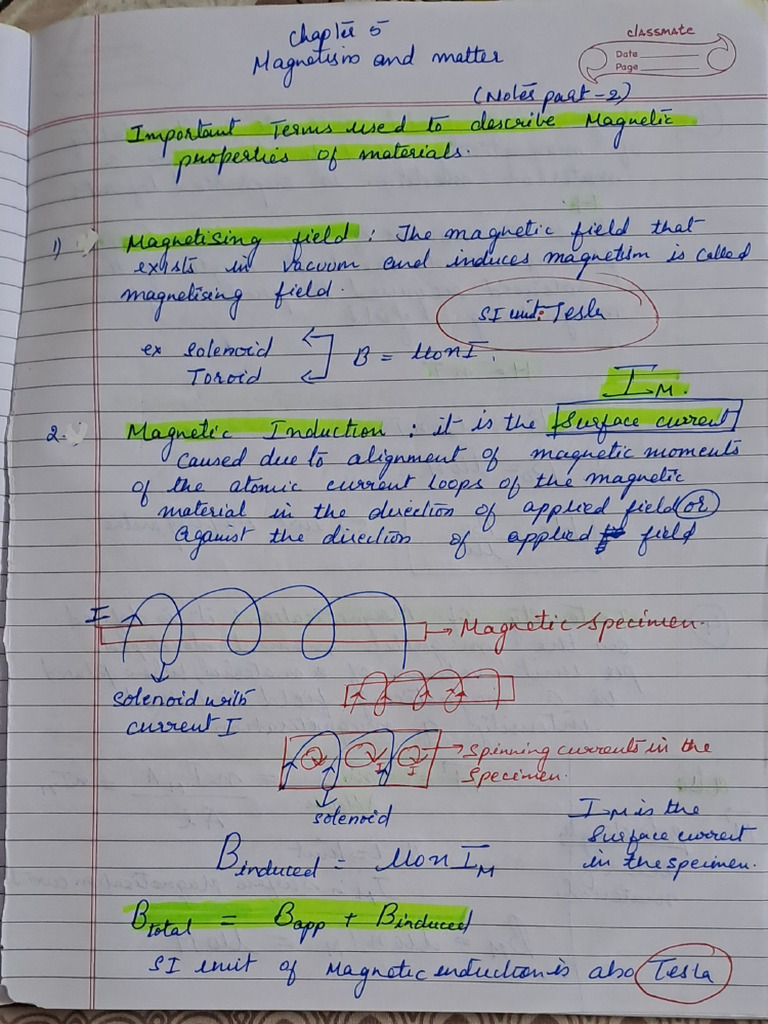 Chapter 5
Magnetism and matter
classmate
Date
Page
(Notes part-2)
Important Terms used to describe Magnetic
properties of materials.
1) Magnetising field : The magnetic field that
exists in vacuum and induces magnetism is called
magnetising field.
SI unit: Tesla
ex Solenoid
Toroid
B = μ0nI.
IM.
2. Magnetic Induction : it is the surface current
caused due to alignment of magnetic moments
of the atomic current loops of the magnetic
material in the direction of applied field (or)
Against the direction of applied field
I
→ Magnetic specimen.
solenoid with
current I
→ Spinning currents in the
specimen.
I I
solenoid
IM is the
surface current
in the specimen.
Binduced = μ0nIM
Btotal = Bapp + Binduced
SI unit of Magnetic induction is also Tesla